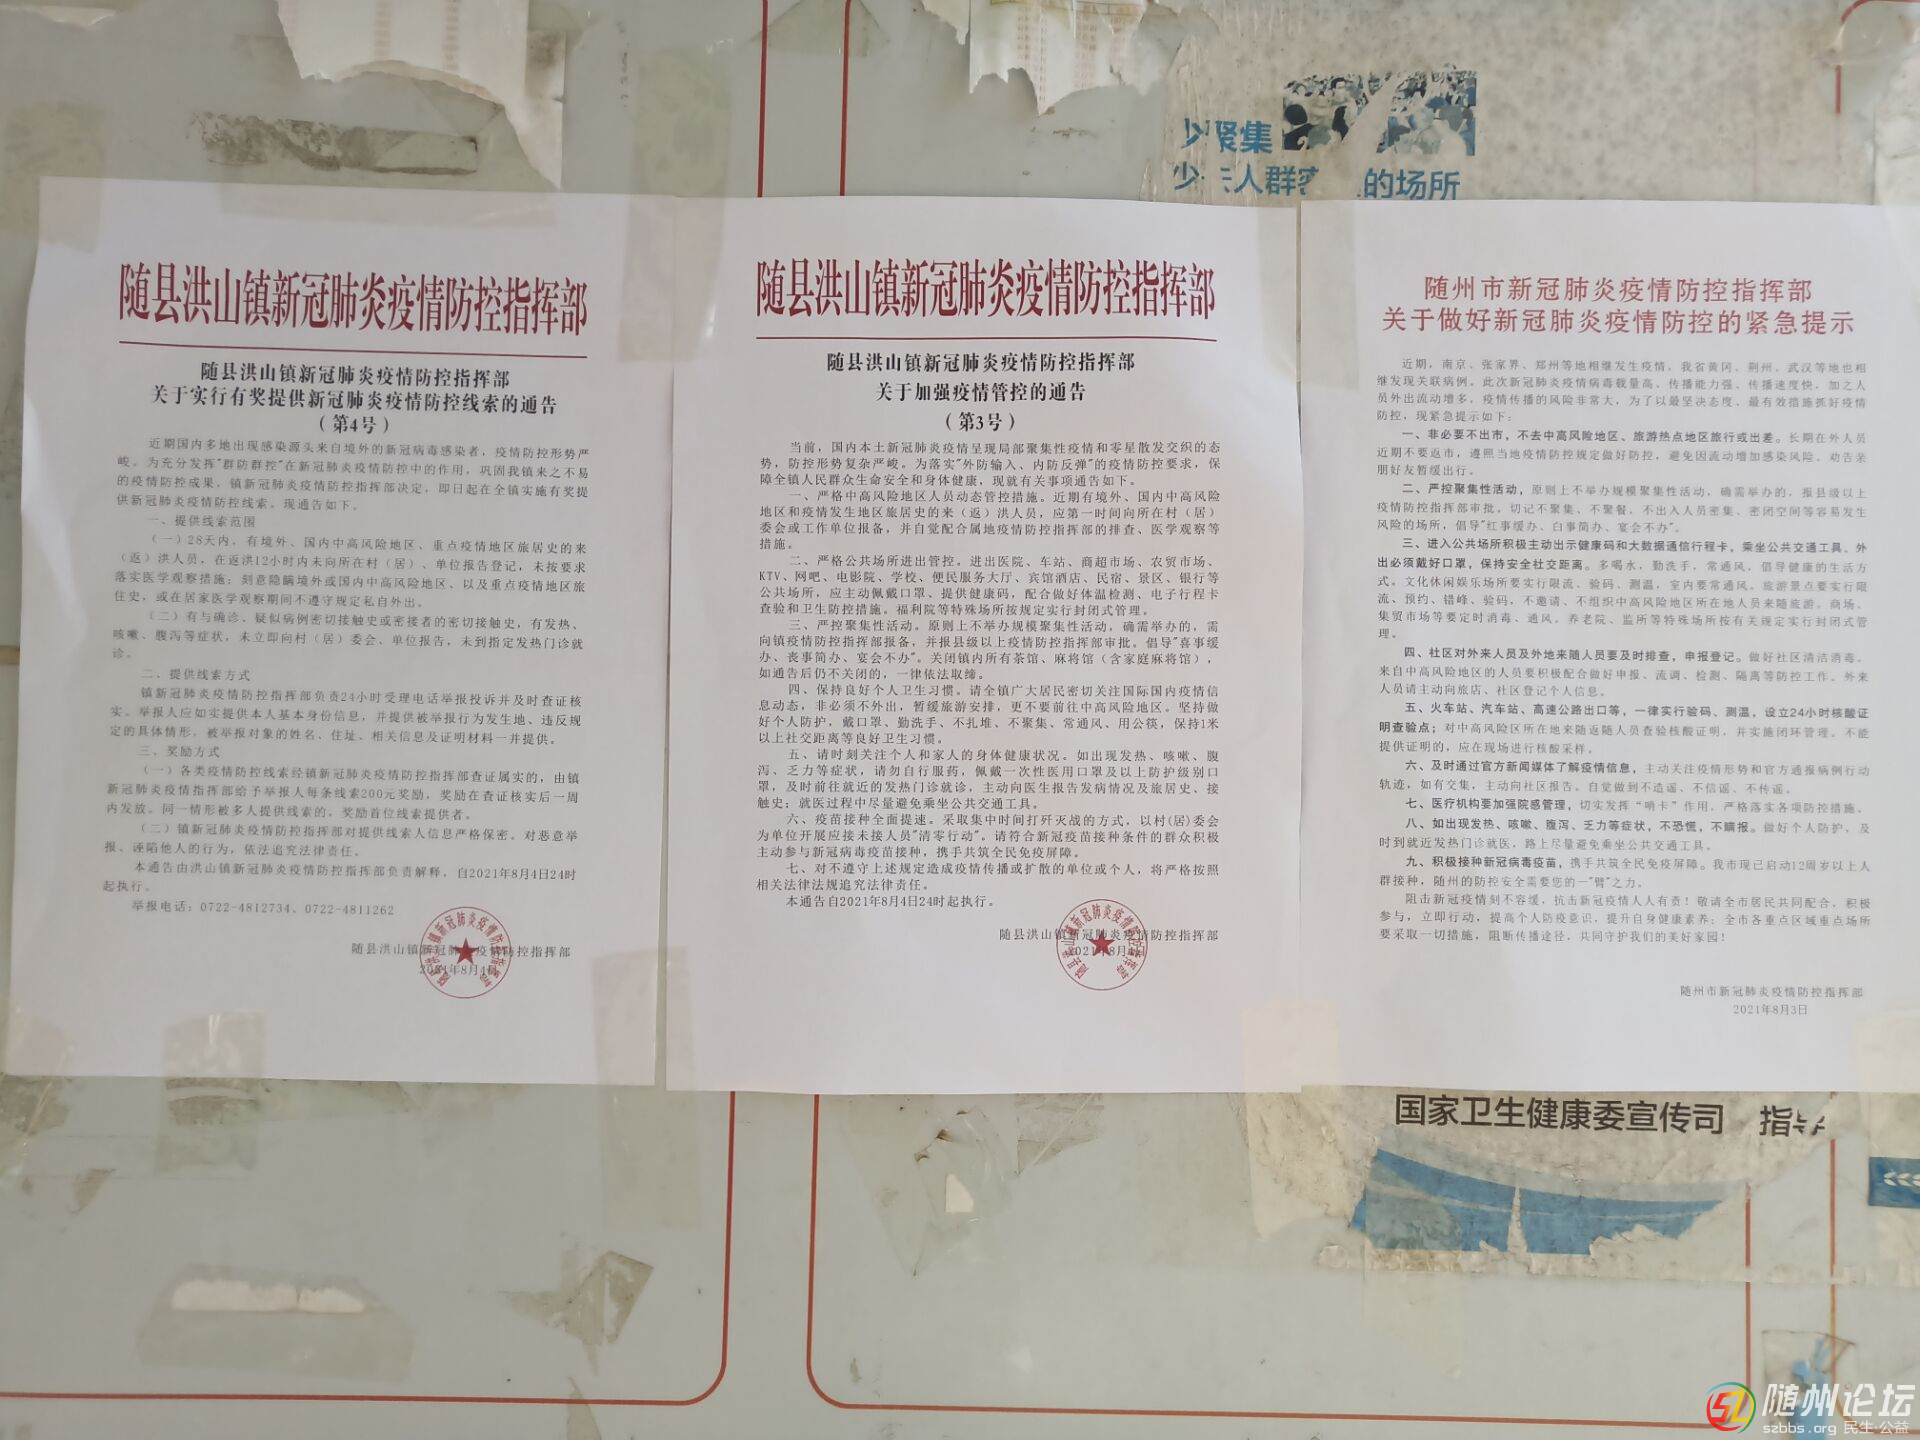 少聚集
少去人群密
的场所
随县洪山镇新冠肺炎疫情防控指挥部
随县洪山镇新冠肺炎疫情防控指挥部
关于实行有奖提供新冠肺炎疫情防控线索的通告
（第4号）
近期国内多地出现感染源头来自境外的新冠病毒感染者，疫情防控形势严
峻。为充分发挥"群防群控"在新冠肺炎疫情防控中的作用，巩固我镇来之不易
的疫情防控成果，镇新冠肺炎疫情防控指挥部决定，即日起在全镇实施有奖提
供新冠肺炎疫情防控线索。现通告如下。
一、提供线索范围
（一）28天内，有境外、国内中高风险地区、重点疫情地区旅居史的来
（返）洪人员，在返洪12小时内未向所在村（居）、单位报告登记，未按要求
落实医学观察措施；刻意隐瞒境外或国内中高风险地区、以及重点疫情地区旅
住史，或在居家医学观察期间不遵守规定私自外出。
（二）有与确诊、疑似病例密切接触史或密接者的密切接触史，有发热、
咳嗽、腹泻等症状，未立即向村（居）委会、单位报告，未到指定发热门诊就
诊。
二、提供线索方式
镇新冠肺炎疫情防控指挥部负责24小时受理电话举报投诉并及时查证核
实。举报人应如实提供本人基本身份信息，并提供被举报行为发生地、违反规
定的具体情形，被举报对象的姓名、住址、相关信息及证明材料一并提供。
三、奖励方式
（一）各类疫情防控线索经镇新冠肺炎疫情防控指挥部查证属实的，由镇
新冠肺炎疫情指挥部给予举报人每条线索200元奖励，奖励在查证核实后一周
内发放。同一情形被多人提供线索的，奖励首位线索提供者。
（二）镇新冠肺炎疫情防控指挥部对提供线索人信息严格保密。对恶意举
报、诬陷他人的行为，依法追究法律责任。
本通告由洪山镇新冠肺炎疫情防控指挥部负责解释，自2021年8月4日24时
起执行。
举报电话：0722-4812734、0722-4811262
随县洪山镇新冠肺炎疫情防控指挥部
2021年8月4日
随县洪山镇新冠肺炎疫情防控指挥部
随县洪山镇新冠肺炎疫情防控指挥部
随县洪山镇新冠肺炎疫情防控指挥部
关于加强疫情管控的通告
（第3号）
当前，国内本土新冠肺炎疫情呈现局部聚集性疫情和零星散发交织的态
势，防控形势复杂严峻。为落实"外防输入、内防反弹"的疫情防控要求，保
障全镇人民群众生命安全和身体健康，现就有关事项通告如下。
一、严格中高风险地区人员动态管控措施。近期有境外、国内中高风险
地区和疫情发生地区旅居史的来（返）洪人员，应第一时间向所在村（居）
委会或工作单位报备，并自觉配合属地疫情防控指挥部的排查、医学观察等
措施。
二、严格公共场所进出管控。进出医院、车站、商超市场、农贸市场、
KTV、网吧、电影院、学校、便民服务大厅、宾馆酒店、民宿、景区、银行等
公共场所，应主动佩戴口罩、提供健康码，配合做好体温检测、电子行程卡
查验和卫生防控措施。福利院等特殊场所按规定实行封闭式管理。
三、严控聚集性活动。原则上不举办规模聚集性活动，确需举办的，需
向镇疫情防控指挥部报备，并报县级以上疫情防控指挥部审批。倡导"喜事缓
办、丧事简办、宴会不办"。关闭镇内所有茶馆、麻将馆（含家庭麻将馆），
如通告后仍不关闭的，一律依法取缔。
四、保持良好个人卫生习惯。请全镇广大居民密切关注国际国内疫情信
息动态，非必须不外出，暂缓旅游安排，更不要前往中高风险地区。坚持做
好个人防护，戴口罩、勤洗手、不扎堆、不聚集、常通风、用公筷，保持1米
以上社交距离等良好卫生习惯。
五、请时刻关注个人和家人的身体健康状况。如出现发热、咳嗽、腹
泻、乏力等症状，请勿自行服药，佩戴一次性医用口罩及以上防护级别口
罩，及时前往就近的发热门诊就诊，主动向医生报告发病情况及旅居史、接
触史；就医过程中尽量避免乘坐公共交通工具。
六、疫苗接种全面提速。采取集中时间打歼灭战的方式，以村(居)委会
为单位开展应接未接人员"清零行动"。请符合新冠疫苗接种条件的群众积极
主动参与新冠病毒疫苗接种，携手共筑全民免疫屏障。
七、对不遵守上述规定造成疫情传播或扩散的单位或个人，将严格按照
相关法律法规追究法律责任。
本通告自2021年8月4日24时起执行。
随县洪山镇新冠肺炎疫情防控指挥部
2021年8月4日
随县洪山镇新冠肺炎疫情防控指挥部
随州市新冠肺炎疫情防控指挥部
关于做好新冠肺炎疫情防控的紧急提示
近期，南京、张家界、郑州等地相继发生疫情，我省黄冈、荆州、武汉等地也相
继发现关联病例。此次新冠肺炎疫情病毒载量高、传播能力强、传播速度快，加之人
员外出流动增多，疫情传播的风险非常大，为了以最坚决态度、最有效措施抓好疫情
防控，现紧急提示如下：
一、非必要不出市，不去中高风险地区、旅游热点地区旅行或出差。长期在外人员
近期不要返市，遵照当地疫情防控规定做好防控，避免因流动增加感染风险。劝告亲
朋好友暂缓出行。
二、严控聚集性活动，原则上不举办规模聚集性活动，确需举办的，报县级以上
疫情防控指挥部审批，切记不聚集、不聚餐，不出入人员密集、密闭空间等容易发生
风险的场所，倡导"红事缓办、白事简办、宴会不办"。
三、进入公共场所积极主动出示健康码和大数据通信行程卡，乘坐公共交通工具、外
出必须戴好口罩，保持安全社交距离。多喝水，勤洗手，常通风，倡导健康的生活方
式。文化休闲娱乐场所要实行限流、验码、测温，室内要常通风。旅游景点要实行限
流、预约、错峰、验码，不邀请、不组织中高风险地区所在地人员来随旅游。商场、
集贸市场等要定时消毒、通风。养老院、监所等特殊场所按有关规定实行封闭式管
理。
四、社区对外来人员及外地来随人员要及时排查，申报登记。做好社区清洁消毒。
来自中高风险地区的人员要积极配合做好申报、流调、检测、隔离等防控工作。外来
人员请主动向旅店、社区登记个人信息。
五、火车站、汽车站、高速公路出口等，一律实行验码、测温，设立24小时核酸证
明查验点；对中高风险区所在地来随返随人员查验核酸证明，并实施闭环管理。不能
提供证明的，应在现场进行核酸采样。
六、及时通过官方新闻媒体了解疫情信息，主动关注疫情形势和官方通报病例行动
轨迹，如有交集，主动向社区报告。自觉做到不造谣、不信谣、不传谣。
七、医疗机构要加强院感管理，切实发挥"哨卡"作用，严格落实各项防控措施。
八、如出现发热、咳嗽、腹泻、乏力等症状，不恐慌，不瞒报。做好个人防护，及
时到就近发热门诊就医，路上尽量避免乘坐公共交通工具。
九、积极接种新冠病毒疫苗，携手共筑全民免疫屏障。我市现已启动12周岁以上人
群接种，随州的防控安全需要您的一"臂"之力。
阻击新冠疫情刻不容缓，抗击新冠疫情人人有责！敬请全市居民共同配合，积极
参与，立即行动，提高个人防疫意识，提升自身健康素养；全市各重点区域重点场所
要采取一切措施，阻断传播途径，共同守护我们的美好家园！
随州市新冠肺炎疫情防控指挥部
2021年8月3日
国家卫生健康委宣传司 指导
随州论坛
szbbs.org 民生·公益